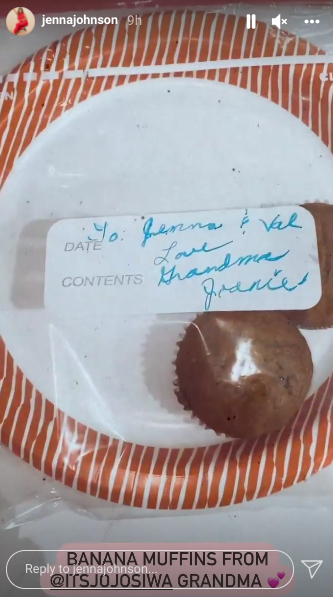 jennajohnson 9h
To: Jenna & Val
DATE
Love
CONTENTS Grandma
Joanie
BANANA MUFFINS FROM
@ITSJOJOSIWA GRANDMA 💕
Reply to jennajohnson...